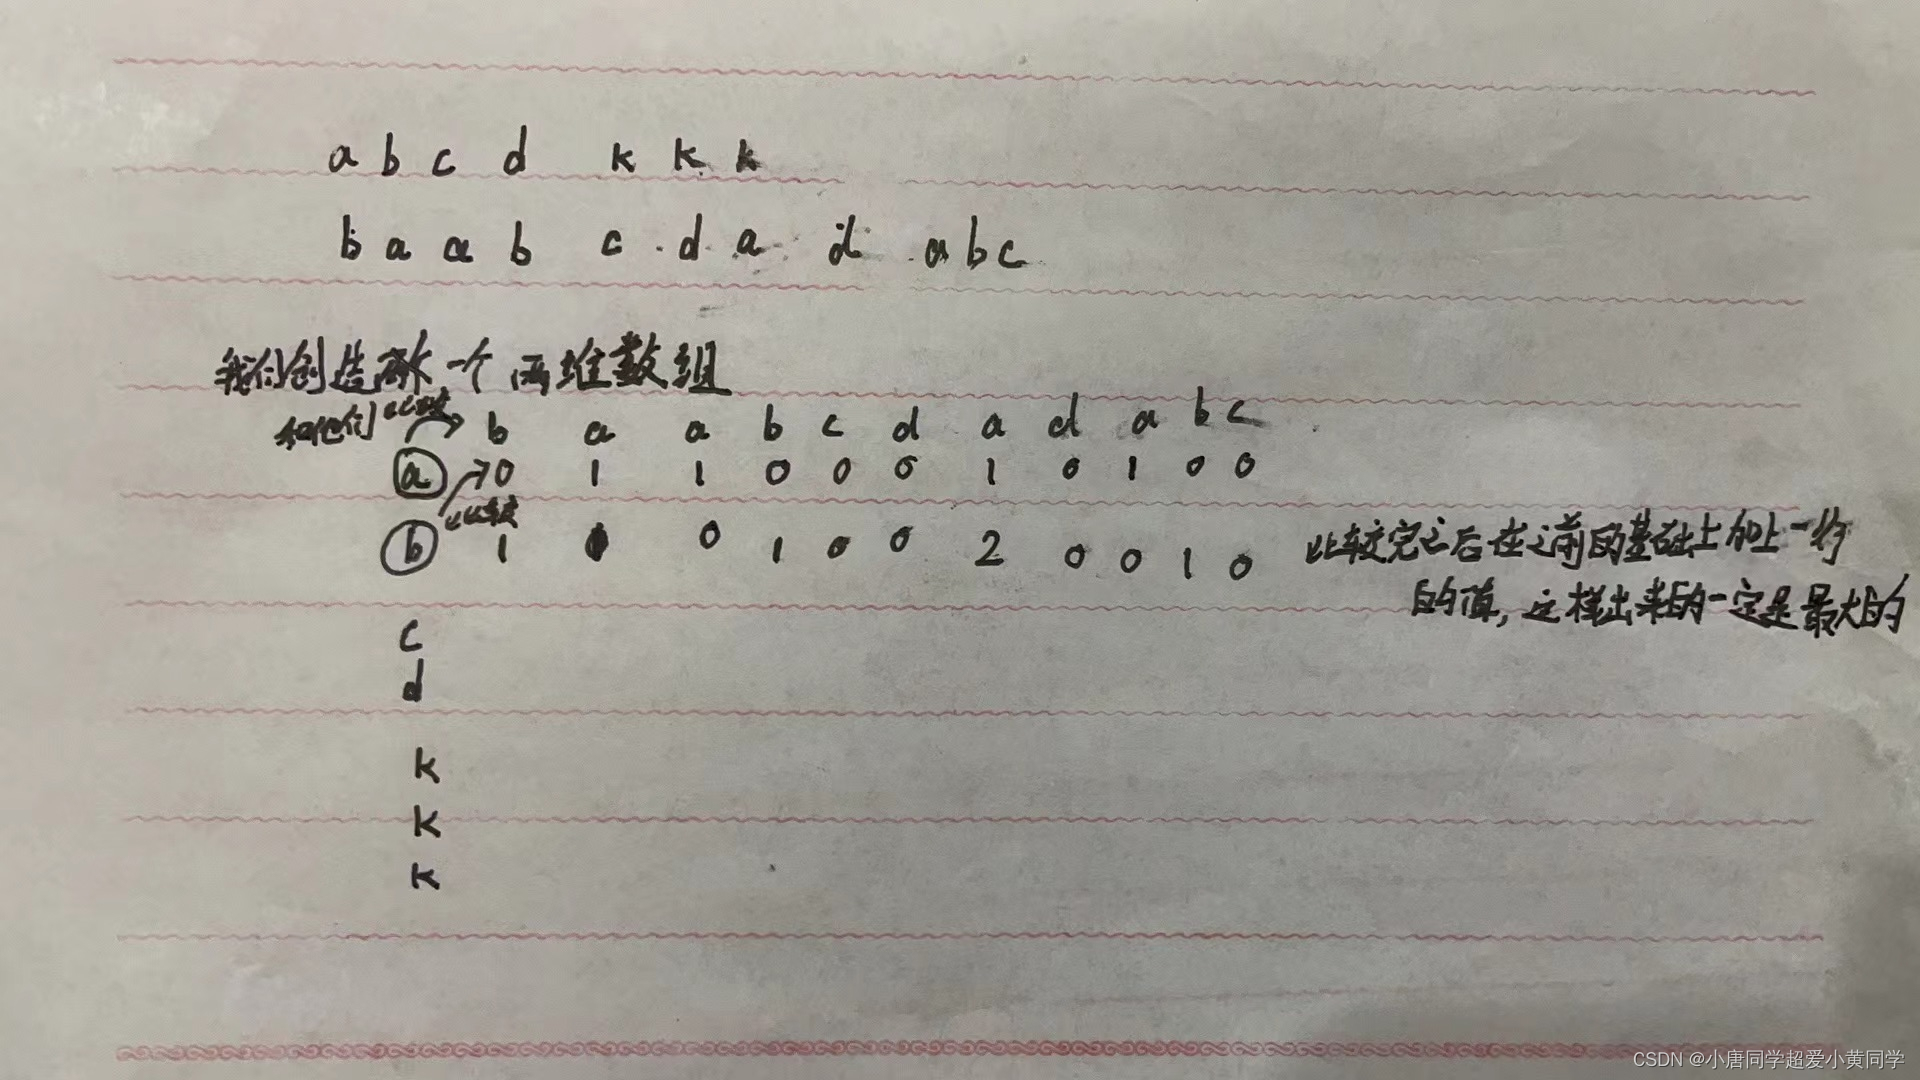 a b c d k k k
b a a b c d a d a b c
我们创造 一个两堆数组
和他们 比较 b a a b c d a d a b c
a 0 1 1 0 0 0 1 0 1 0 0
比较
b 1 0 1 0 0 2 0 0 1 0 比较完之后在之前的基础上加上一行
的值,这样出来的一定是最大的
c
d
k
k
k
CSDN @小唐同学超爱小黄同学